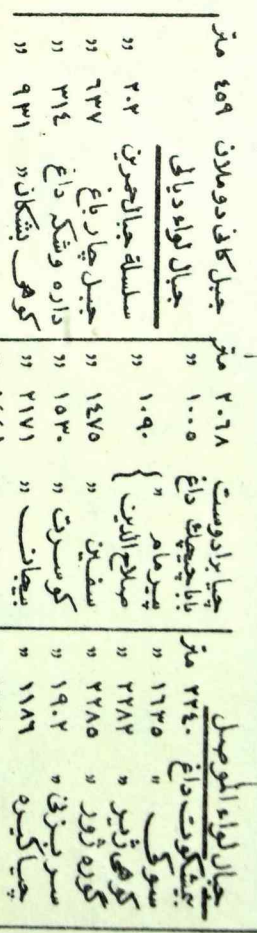 جبال لواء الموصل
بيشكوت داغ ٢٢٤٠ متر
سوكي " ١٦٣٥ "
كوهي زبير " ٢٢٨٢ "
كوره زور " ٢٢٨٥ "
سر بزني " ١٩٠٢ "
جياكيره ١١٨٩ "
جيا برادوست ٢٠٦٨ متر
بابا جيجك داغ ١٠٠٥ "
بيرمام "
صلاح الدين } ١٠٩٠ "
سفين " ١٤٧٥ "
كوسرت " ١٥٣٠ "
بيجان " ٢١٧١ "
جبل كاني دوملان ٤٥٩ متر
جبال لواء ديالى
سلسلة جبال حمرين ٢٠٢ "
جبل جارباغ ٦٣٧ "
داره وشكه داغ ٣١٤ "
كوهي بشكان " ٩٣١ "